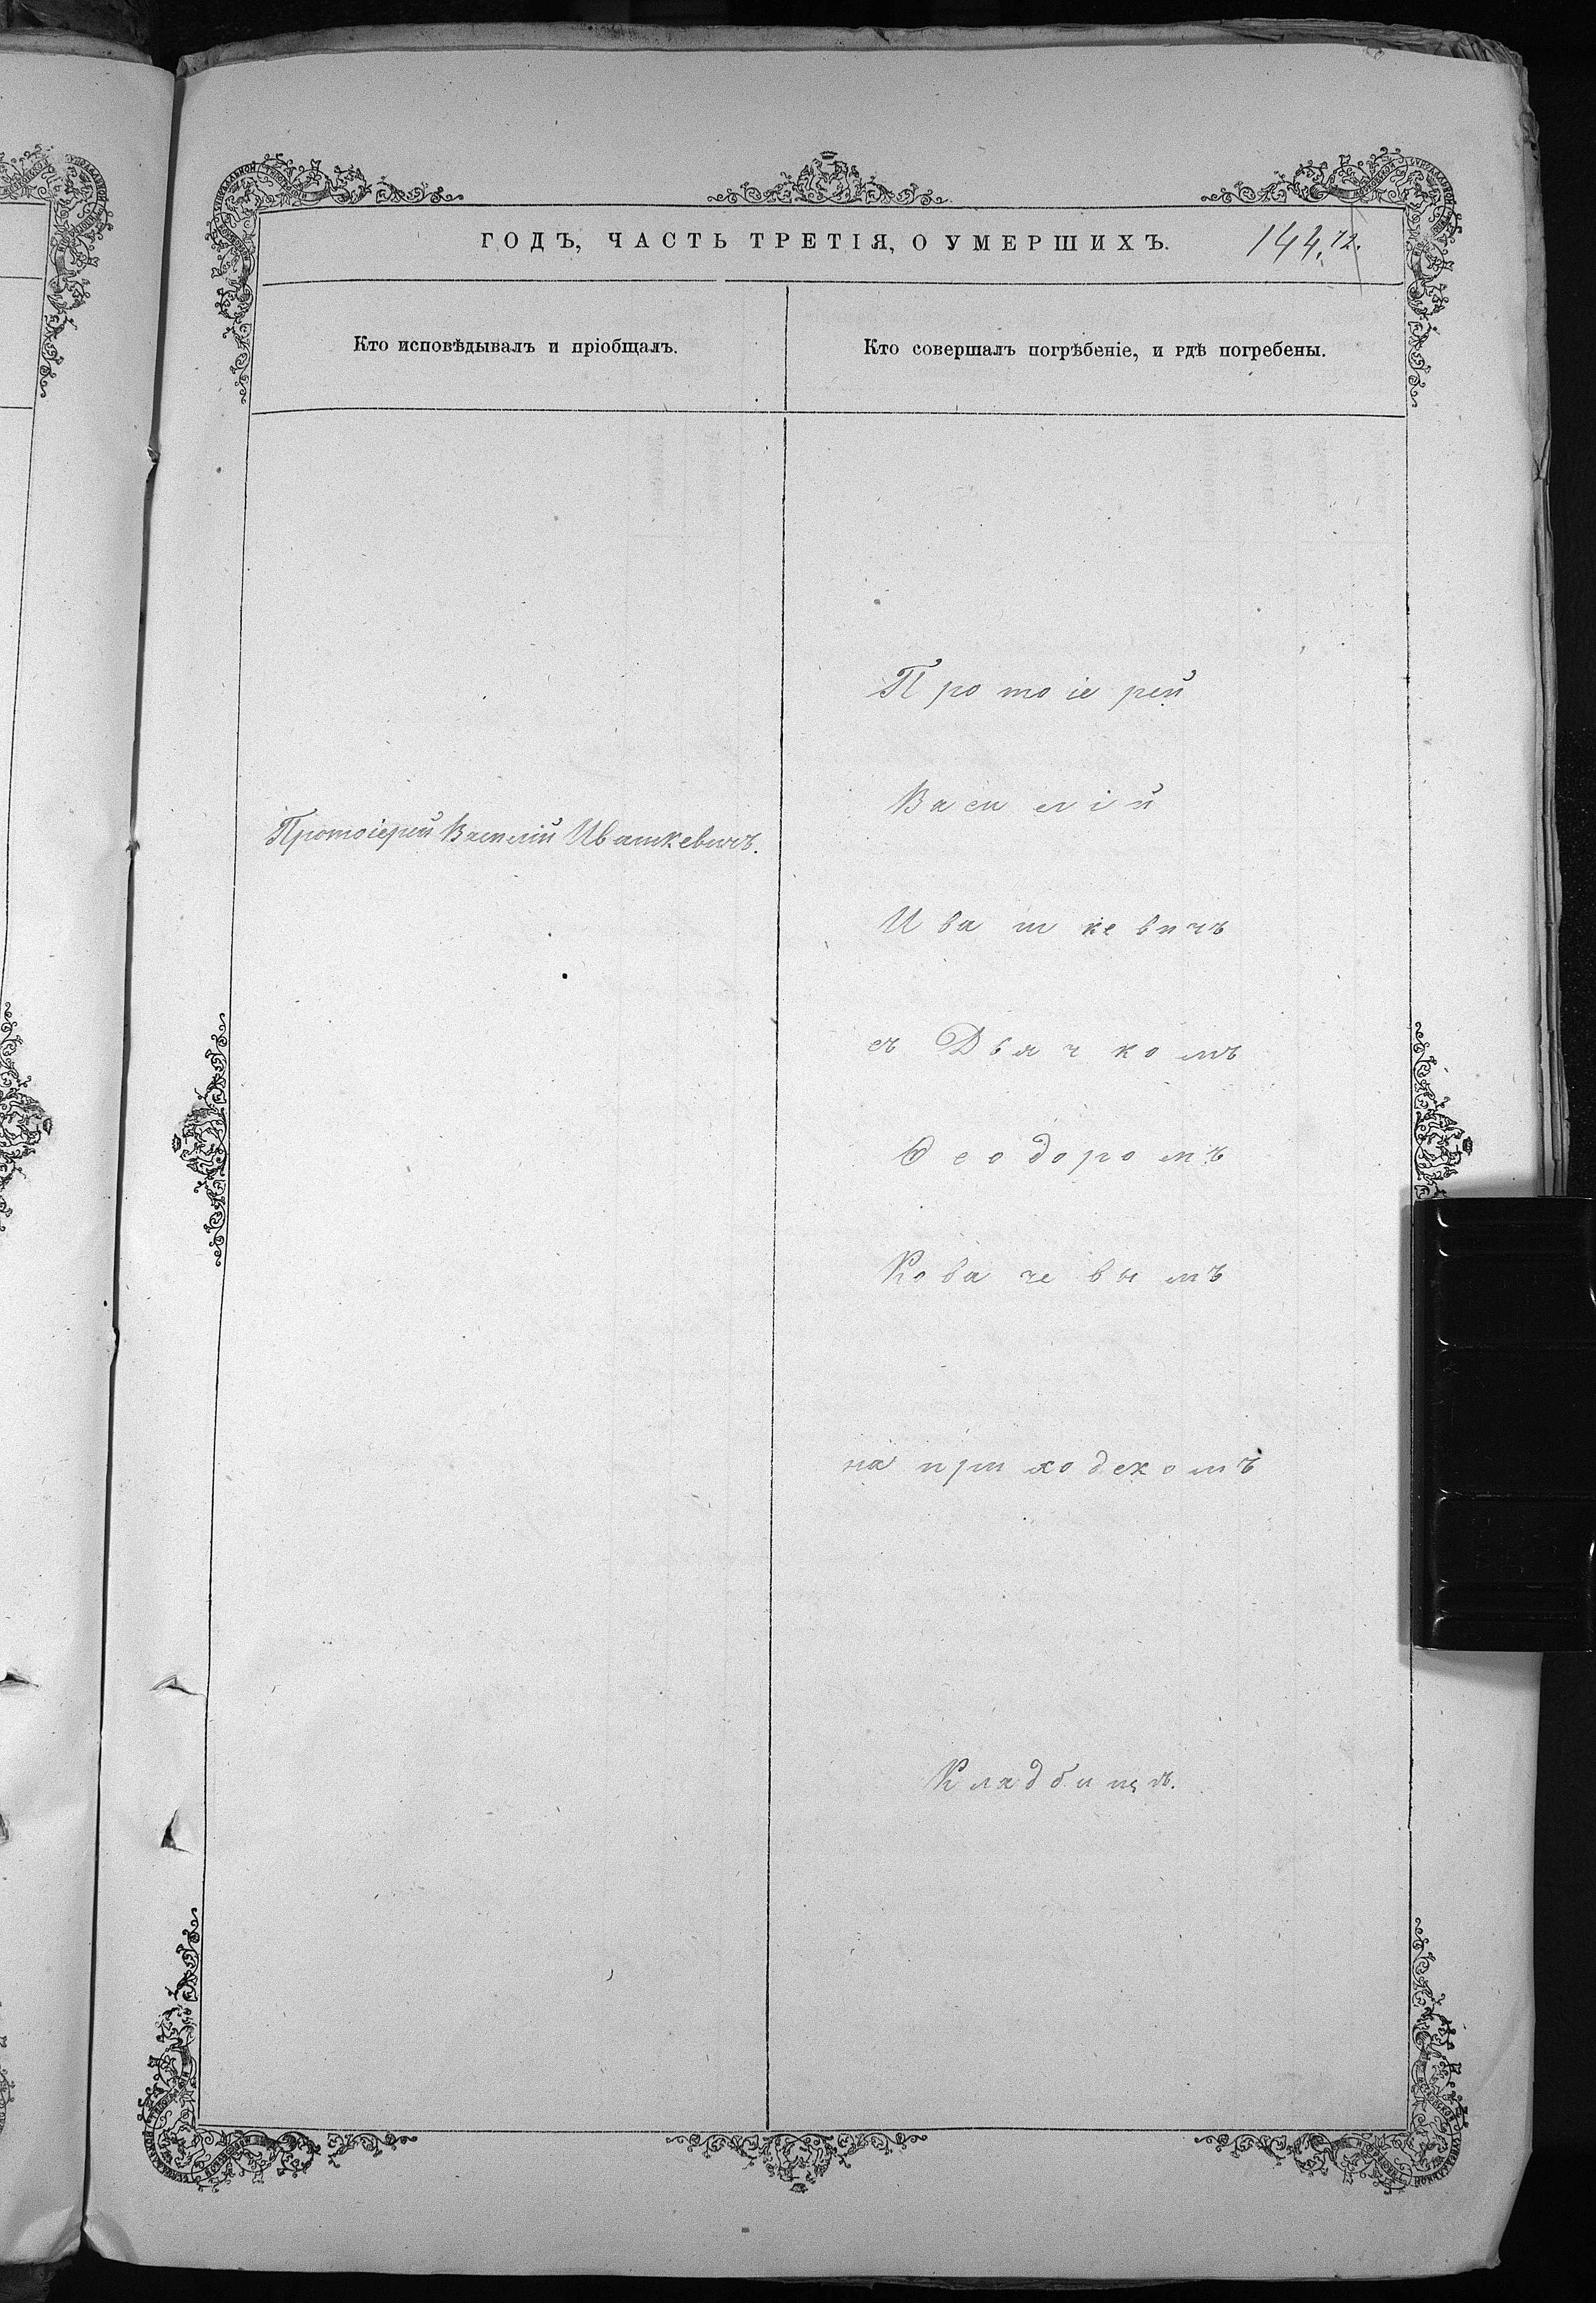 ГОДЪ, ЧАСТЬ ТРЕТІЯ, О УМЕРШИХЪ.
144. 72.
Кто исповѣдывалъ и пріобщалъ.
Кто совершалъ погрѣбеніе, и гдѣ погребены.
Протоіерей Василій Ивашкевичъ.
Протоіерей
Василій
Ивашкевичъ
съ Дьячкомъ
Ѳеодоромъ
Ковачевымъ
на приходскомъ
Кладбищѣ.